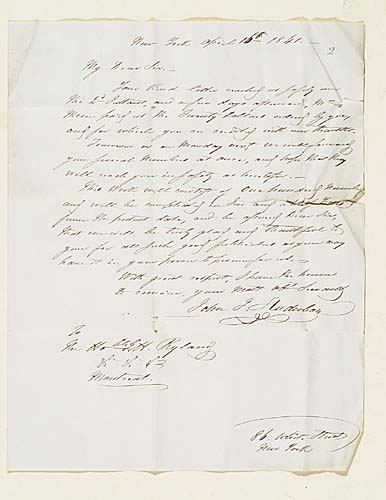 New York April 16th 1841. —
2
My Dear Sir. —
Your Kind Letter reached us safely on
the 2d Instant, and a few days afterward, Mr
paid us the Twenty dollars by you,
and for which you are credited with our thanks.
Tomorrow or on Monday next we will forward
your Numbers at once, and hope that they
will reach you in safety as heretofore. —
This Work will consist of One hundred Numbers
and will be completed in Two and
from the present date, and be assured Dear Sir,
that we will be truly glad and thankful to
you for all such good as you may
have it in your power to procure for us. —
With great respect, I have the honour
to remain, your Most Obt Servant
John J. Audubon
To
The Honble H Ryland
&c &c &c
Montreal.
86 White Street
New York